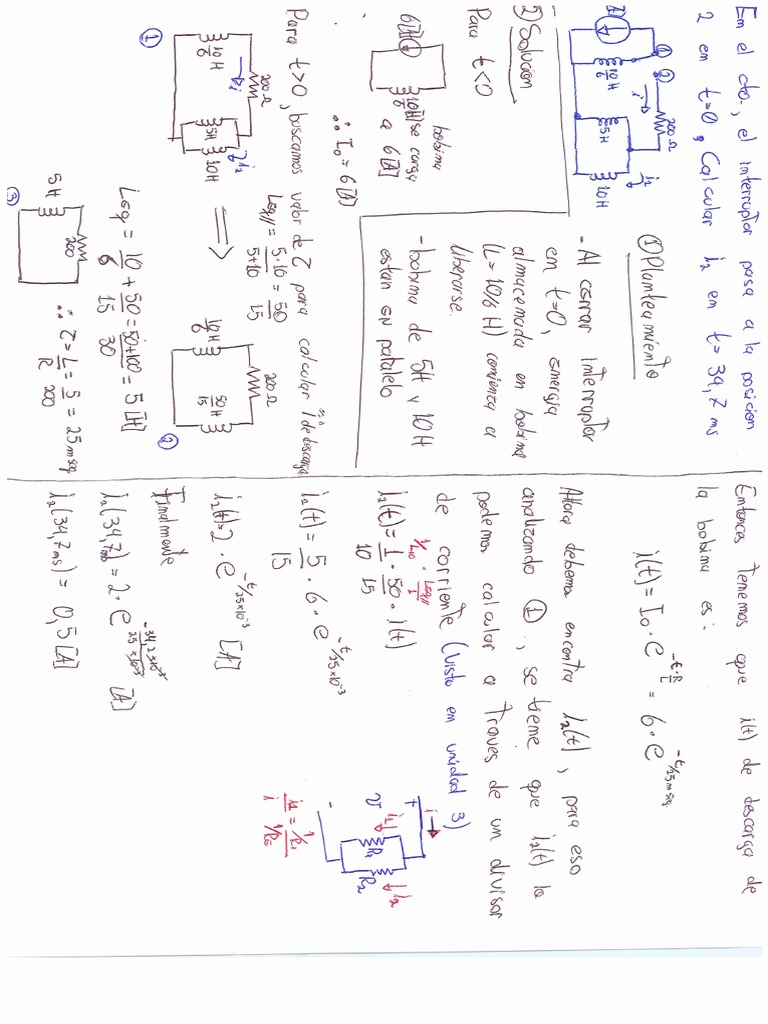 En el cto., el interruptor pasa a la posicion
2 en t=0, Calcular i₂ en t= 34,7 ms
① ②
200Ω
i
10/6 H
5H
i₂
10H
① Planteamiento
- Al cerrar interruptor
en t=0, energia
almacenada en bobina
(L=10/6 H) comienza a
liberarse.
- bobina de 5H y 10H
estan en paralelo
② Solucion
Para t<0
6[A]
10/6 H
bobina
se carga
a 6[A]
∴ I₀ = 6[A]
Para t>0, buscamos valor de τ para calcular i de descarga
①
200Ω
i
10/6 H
5H
i₂
10H
Leq// = 5·10/5+10 = 50/15
⇒
200Ω
10/6 H
50/15 H
②
Leq = 10/6 + 50/15 = 50+100/30 = 5 [H]
③
200
5H
∴ τ = L/R = 5/200 = 25 mseg
Entonces tenemos que i(t) de descarga de
la bobina es:
i(t) = I₀ · e^-t·R/L = 6 · e^-t/25mseg
Ahora debemos encontra i₂(t), para eso
analizando ①, se tiene que i₂(t) lo
podemos calcular a traves de un divisor
de corriente (visto en unidad 3)
1/L10 · Leq///1
i₂(t) = 1/10 · 50/15 · i(t)
i₂(t) = 5/15 · 6 · e^-t/25×10⁻³
i₂(t) = 2 · e^-t/25×10⁻³ [A]
i
+
v
-
i₁
R₁
i₂
R₂
Finalmente
i₂(34,7ms) = 2 · e^-34,7×10⁻³/25×10⁻³ [A]
i₂(34,7ms) = 0,5[A]